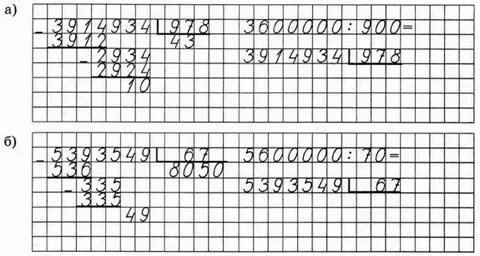 а)
3914934 978 3600000:900=
3912 43
2934 3914934 978
2924
10
б)
5393549 67 5600000:70=
536 8050
335 5393549 67
335
49